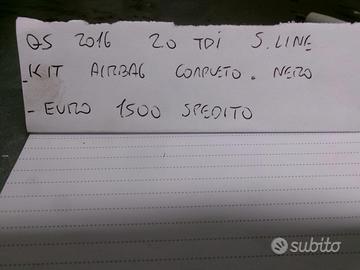 Q5 2016 2.0 TDI S.LINE
-KIT AIRBAG COMPLETO. NERO
- EURO 1500 SPEDITO
subito